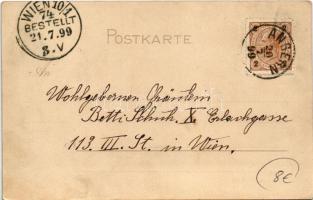 WIEN 10/1
74
BESTELLT
21.7.99
8.V
POSTKARTE
Wohlgebornen Fräulein
Betti Schuh. X Erlachgasse
113. III. St. in Wien.
8€